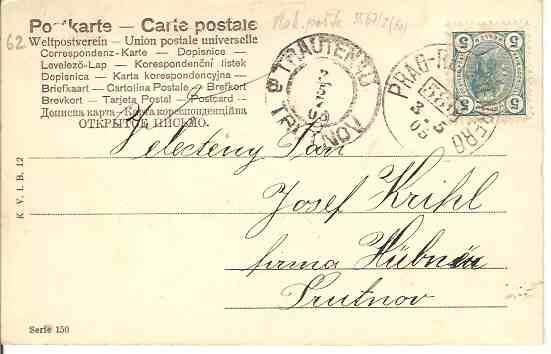 Postkarte — Carte postale
Weltpostverein – Union postale universelle
Correspondenz-Karte — Dopisnice
Levelező-Lap — Korespondenční lístek
Dopisnica — Karta korespondencyjna
Briefkaart — Cartolina Postale — Brefkort
Brevkort — Tarjeta Postal — Postcard
Дописна карта — Карта кореспонденційна
ОТКРЫТОЕ ПИСЬМО.
62
TRAUTENAU
TRUTNOV
PRAG
BERG
3 5
05
5
5
5
5
Velectěný Pan
Josef Krihl
firma Hübner
Trutnov
K. V. i. B. 12
Serie 150